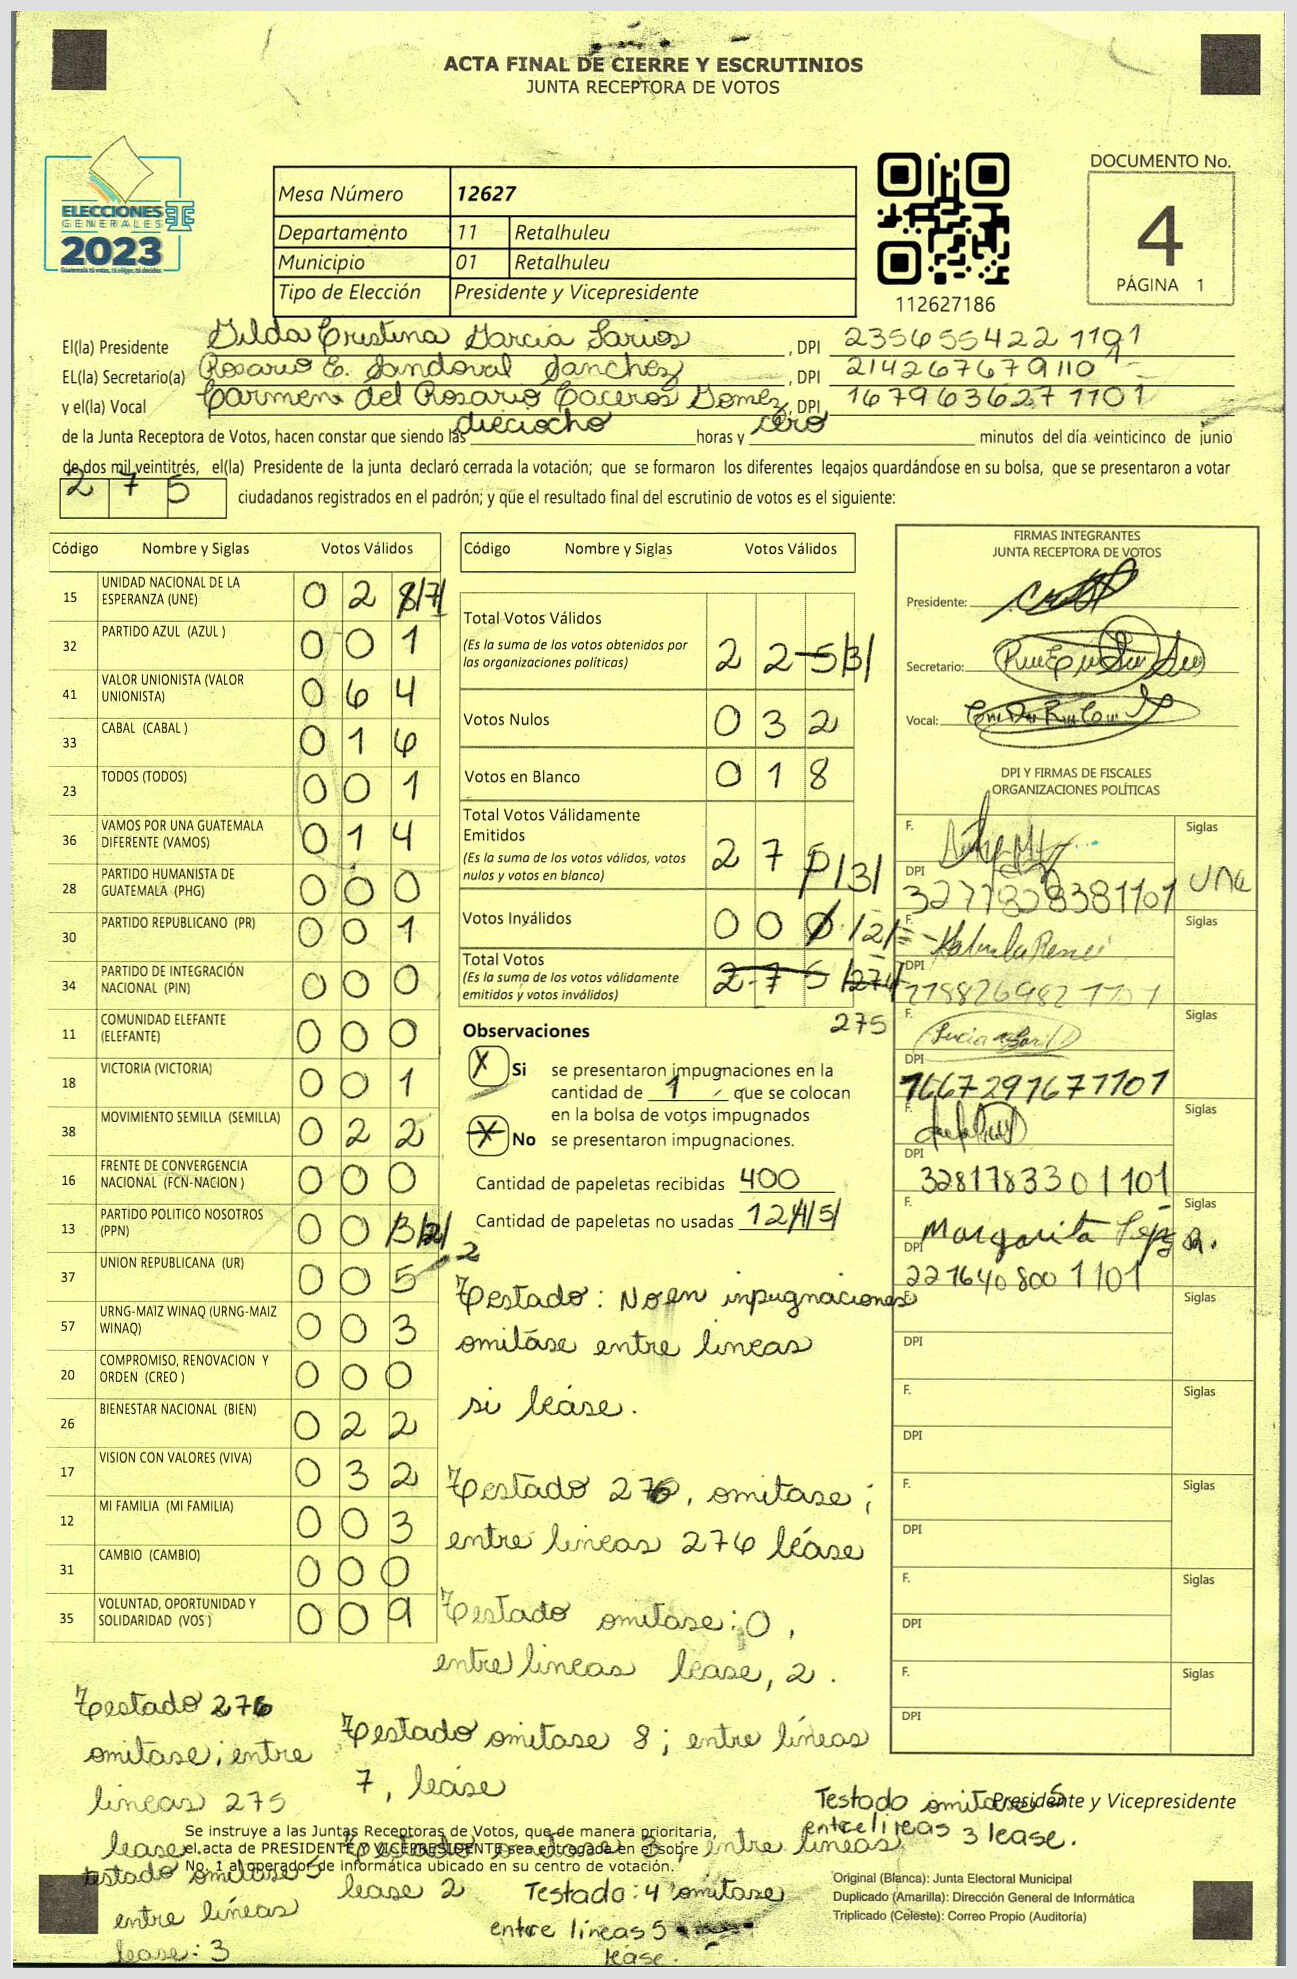 ACTA FINAL DE CIERRE Y ESCRUTINIOS
JUNTA RECEPTORA DE VOTOS
ELECCIONES
GENERALES
2023
Mesa Número 12627
Departamento 11 Retalhuleu
Municipio 01 Retalhuleu
Tipo de Elección Presidente y Vicepresidente
112627186
DOCUMENTO No.
4
PÁGINA 1
El(la) Presidente Gilda Cristina Garcia Larios, DPI 2356554221101
EL(la) Secretario(a) Rosario E. Sandoval Sanchez, DPI 214267679110
y el(la) Vocal Carmen del Rosario Caceros Gomez, DPI 1679636271101
de la Junta Receptora de Votos, hacen constar que siendo las dieciocho horas y cero minutos del día veinticinco de junio
de dos mil veintitrés, el(la) Presidente de la junta declaró cerrada la votación; que se formaron los diferentes legajos guardándose en su bolsa, que se presentaron a votar
275 ciudadanos registrados en el padrón; y que el resultado final del escrutinio de votos es el siguiente:
Código Nombre y Siglas Votos Válidos
15 UNIDAD NACIONAL DE LA ESPERANZA (UNE) 0 2 8/7/
32 PARTIDO AZUL (AZUL ) 0 0 1
41 VALOR UNIONISTA (VALOR UNIONISTA) 0 6 4
33 CABAL (CABAL ) 0 1 6
23 TODOS (TODOS) 0 0 1
36 VAMOS POR UNA GUATEMALA DIFERENTE (VAMOS) 0 1 4
28 PARTIDO HUMANISTA DE GUATEMALA (PHG) 0 0 0
30 PARTIDO REPUBLICANO (PR) 0 0 1
34 PARTIDO DE INTEGRACIÓN NACIONAL (PIN) 0 0 0
11 COMUNIDAD ELEFANTE (ELEFANTE) 0 0 0
18 VICTORIA (VICTORIA) 0 0 1
38 MOVIMIENTO SEMILLA (SEMILLA) 0 2 2
16 FRENTE DE CONVERGENCIA NACIONAL (FCN-NACION ) 0 0 0
13 PARTIDO POLITICO NOSOTROS (PPN) 0 0 3/2/
2
37 UNION REPUBLICANA (UR) 0 0 5
57 URNG-MAIZ WINAQ (URNG-MAIZ WINAQ) 0 0 3
20 COMPROMISO, RENOVACION Y ORDEN (CREO ) 0 0 0
26 BIENESTAR NACIONAL (BIEN) 0 2 2
17 VISION CON VALORES (VIVA) 0 3 2
12 MI FAMILIA (MI FAMILIA) 0 0 3
31 CAMBIO (CAMBIO) 0 0 0
35 VOLUNTAD, OPORTUNIDAD Y SOLIDARIDAD (VOS ) 0 0 9
Código Nombre y Siglas Votos Válidos
Total Votos Válidos 2 2 5/3/
(Es la suma de los votos obtenidos por
las organizaciones políticas)
Votos Nulos 0 3 2
Votos en Blanco 0 1 8
Total Votos Válidamente
Emitidos 2 7 5/3/
(Es la suma de los votos válidos, votos
nulos y votos en blanco)
Votos Inválidos 0 0 0/2/
Total Votos 2 7 5 /274/
(Es la suma de los votos válidamente
emitidos y votos inválidos)
275
Observaciones
X Si se presentaron impugnaciones en la
cantidad de 1 que se colocan
en la bolsa de votos impugnados
X No se presentaron impugnaciones.
Cantidad de papeletas recibidas 400
Cantidad de papeletas no usadas 124/5/
Testado: No en inpugnaciones
omitáse entre lineas
si leáse.
Testado 276, omitase;
entre lineas 274 léase
Testado omitase: 0,
entre lineas lease, 2.
Testado omitase 8; entre líneas
7, leáse
Testado omitase 3; entre líneas
lease 2
Testado: 4 omitase
entre líneas 5
léase.
Testado 276
omitase; entre
lineas 275
lease
testado omitase 5
entre líneas
lease: 3
Testado omitase 5
entre lineas 3 lease.
FIRMAS INTEGRANTES
JUNTA RECEPTORA DE VOTOS
Presidente:
Secretario:
Vocal:
DPI Y FIRMAS DE FISCALES
ORGANIZACIONES POLÍTICAS
F. Siglas
DPI 3277828381101 UNE
F. Siglas
DPI
F. Siglas
DPI 1667297671101
F. Siglas
DPI 3281783301101
F. Margarita Siglas
DPI 2216408001101
F. Siglas
DPI
F. Siglas
DPI
F. Siglas
DPI
F. Siglas
DPI
F. Siglas
DPI
Presidente y Vicepresidente
Se instruye a las Juntas Receptoras de Votos, que de manera prioritaria,
el acta de PRESIDENTE Y VICEPRESIDENTE sea entregada en el sobre
No. 1 al operador de informática ubicado en su centro de votación.
Original (Blanca): Junta Electoral Municipal
Duplicado (Amarilla): Dirección General de Informática
Triplicado (Celeste): Correo Propio (Auditoría)